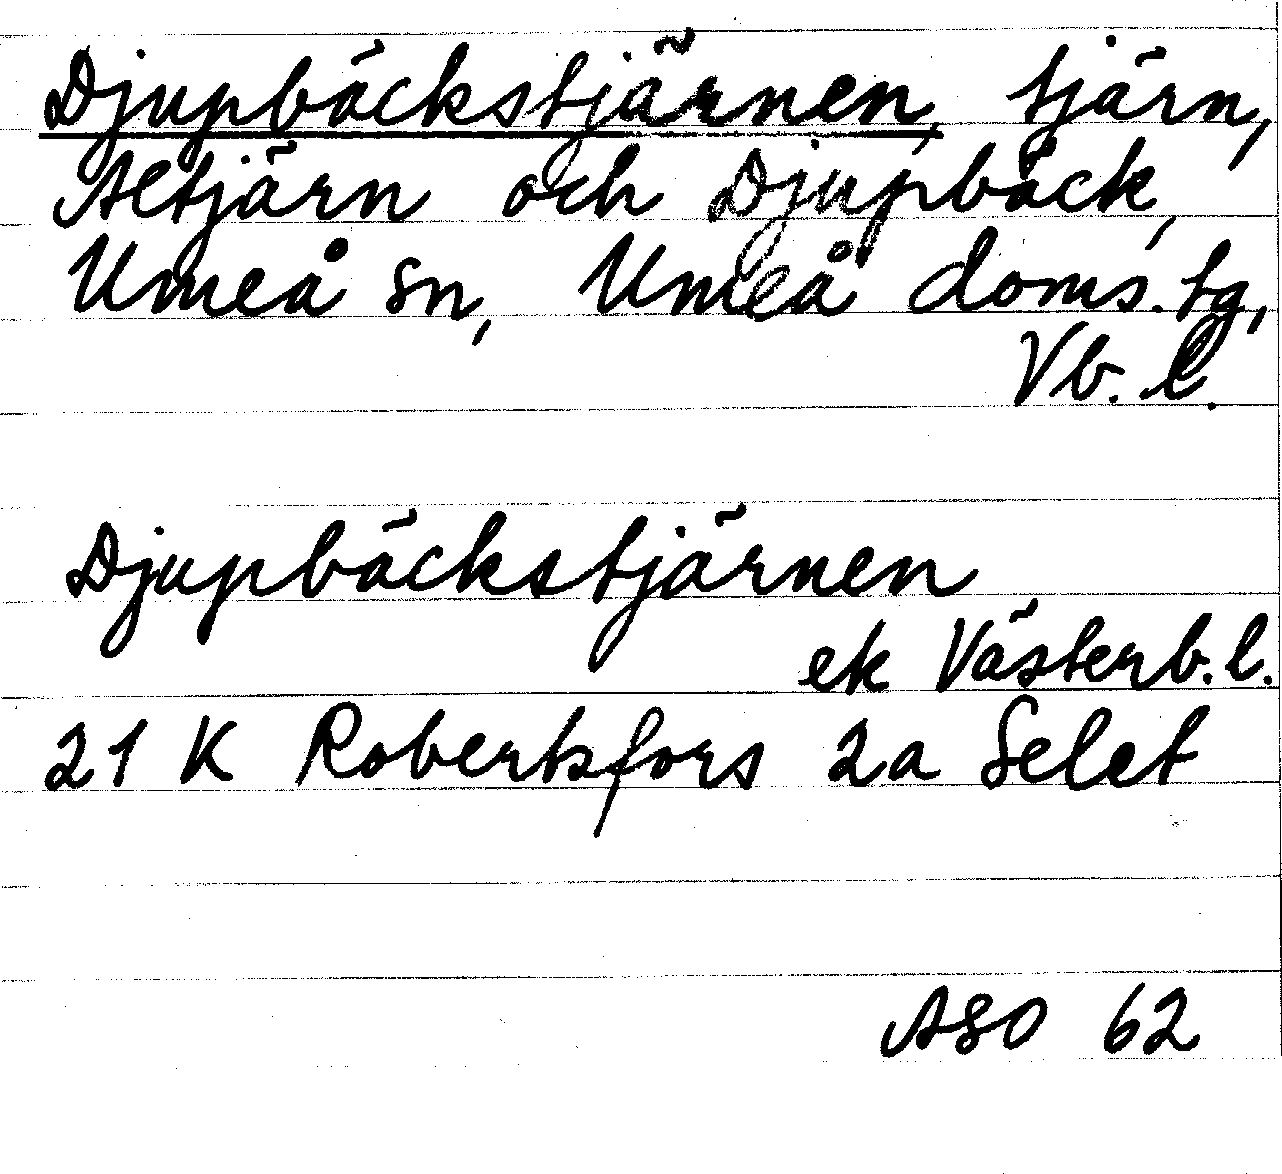 Djupbäckstjärnen, tjärn,
Altjärn och Djupbäck,
Umeå sn, Umeå doms. tg,
Vb. l.
Djupbäckstjärnen
ek Västerb. l.
21 K Robertsfors 2a Selet
ASO 62